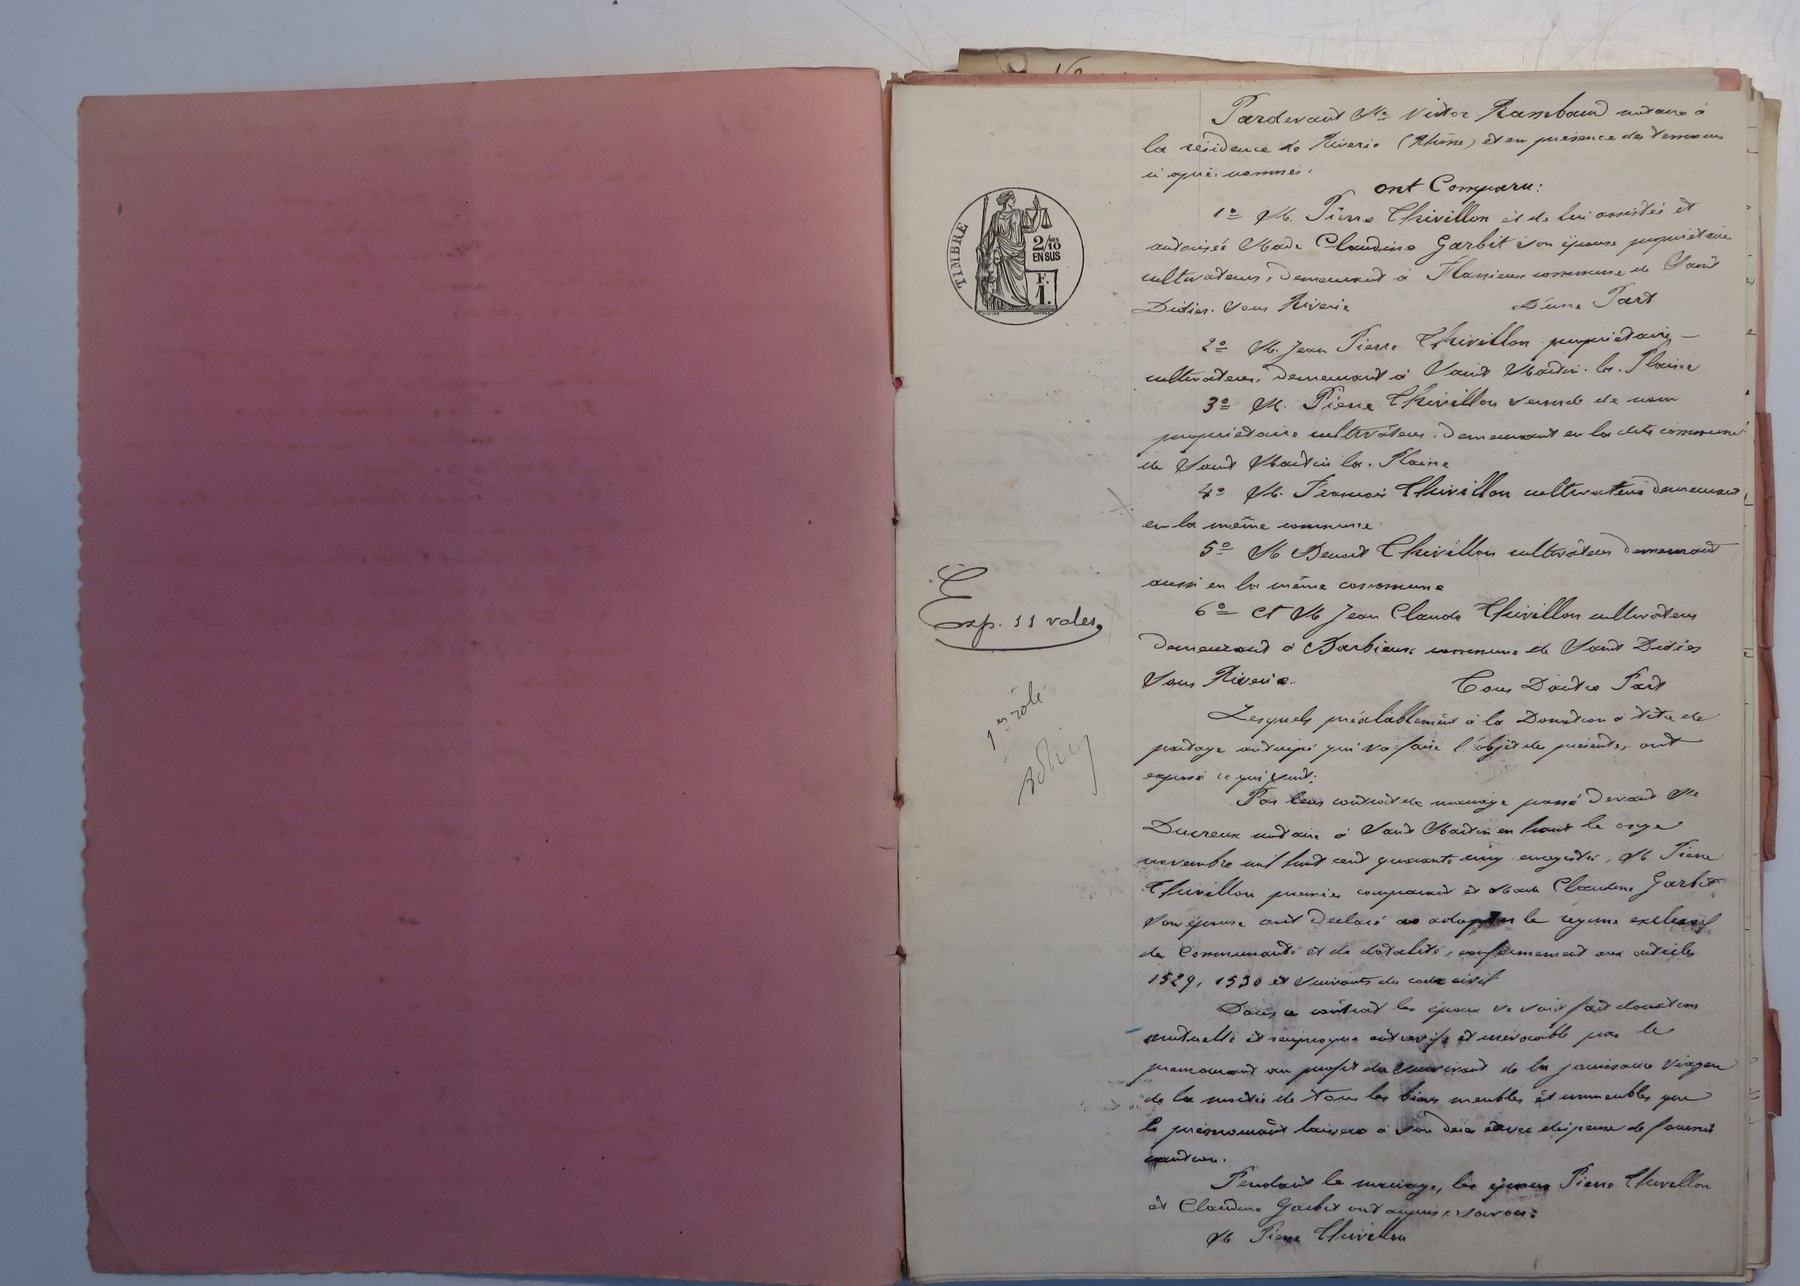 Pardevant Me Victor Rambaud notaire à
la résidence de Riverie (Rhône) et en présence des témoins
ci après nommés:
ont Comparu:
1o M. Pierre Thivillon et de lui assistée et
autorisée Made Claudine Garbit son épouse propriétaires
cultivateurs, demeurant à Flassieux commune de Saint
Didier sous Riverie D'une Part
2o M. Jean Pierre Thivillon propriétaire
cultivateur, demeurant à Saint Martin-la-Plaine
3o M. Pierre Thivillon second de nom
propriétaire cultivateur, demeurant en la dite commune
de Saint Martin la-Plaine
4o M. François Thivillon cultivateur demeurant
en la même commune
5o M Benoit Thivillon cultivateur demeurant
aussi en la même commune
6o et M Jean Claude Thivillon cultivateur
demeurant à Barbieux commune de Saint Didier
sous Riverie. Tous D'autre Part
Lesquels préalablement à la Donation à titre de
partage anticipé qui va faire l'objet des présentes, ont
exposé ce qui suit:
Par leur contrat de mariage passé devant Me
Ducreux notaire à Saint Martin en haut le onze
novembre mil huit cent quarante cinq enregistré, M Pierre
Thivillon premier comparant et Made Claudine Garbit
son épouse ont déclaré adopter le régime exclusif
de Communauté et de dotalité, conformement aux articles
1529, 1530 et suivants du code civil
Dans ce contrat les époux se sont fait donation
mutuelle et réciproque entrevifs et irrévocable par le
premourant au profit du survivant de la jouissance viagère
de la moitié de tous les biens meubles et immeubles que
le prémourant laissera à son décès avec dispense de fournir
caution.
Pendant le mariage, les époux Pierre Thivillon
et Claudine Garbit ont acquis, savoir:
M Pierre Thivillon
TIMBRE
2/10
EN SUS
F.
1.
Exp. 11 roles
1er rôle